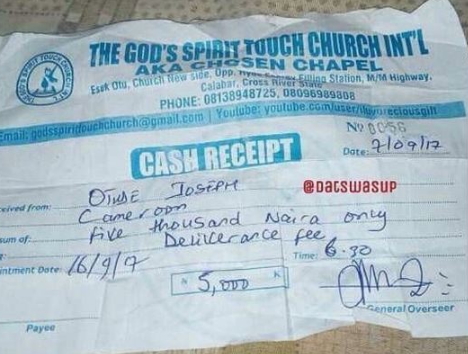 THE GOD'S SPIRIT TOUCH CHURCH INT'L
THE GOD'S SPIRIT TOUCH CHURCH INT'L
AKA CHOSEN CHAPEL
Esek Otu, Church New side, Opp. Filling Station, M/M Highway,
Calabar, Cross River State
PHONE: 08138948725, 08096989808
Email: godsspirittouchchurch@gmail.com | Youtube: youtube.com/user/
No 0056
CASH RECEIPT
Date: 7/09/17
@DATSWASUP
ceived from: JOSEPH
Cameroon
sum of: five thousand Naira only
Deliverance fee
intment Date: 16/9/17 Time: 6.30
N 5,000 K
Payee
General Overseer